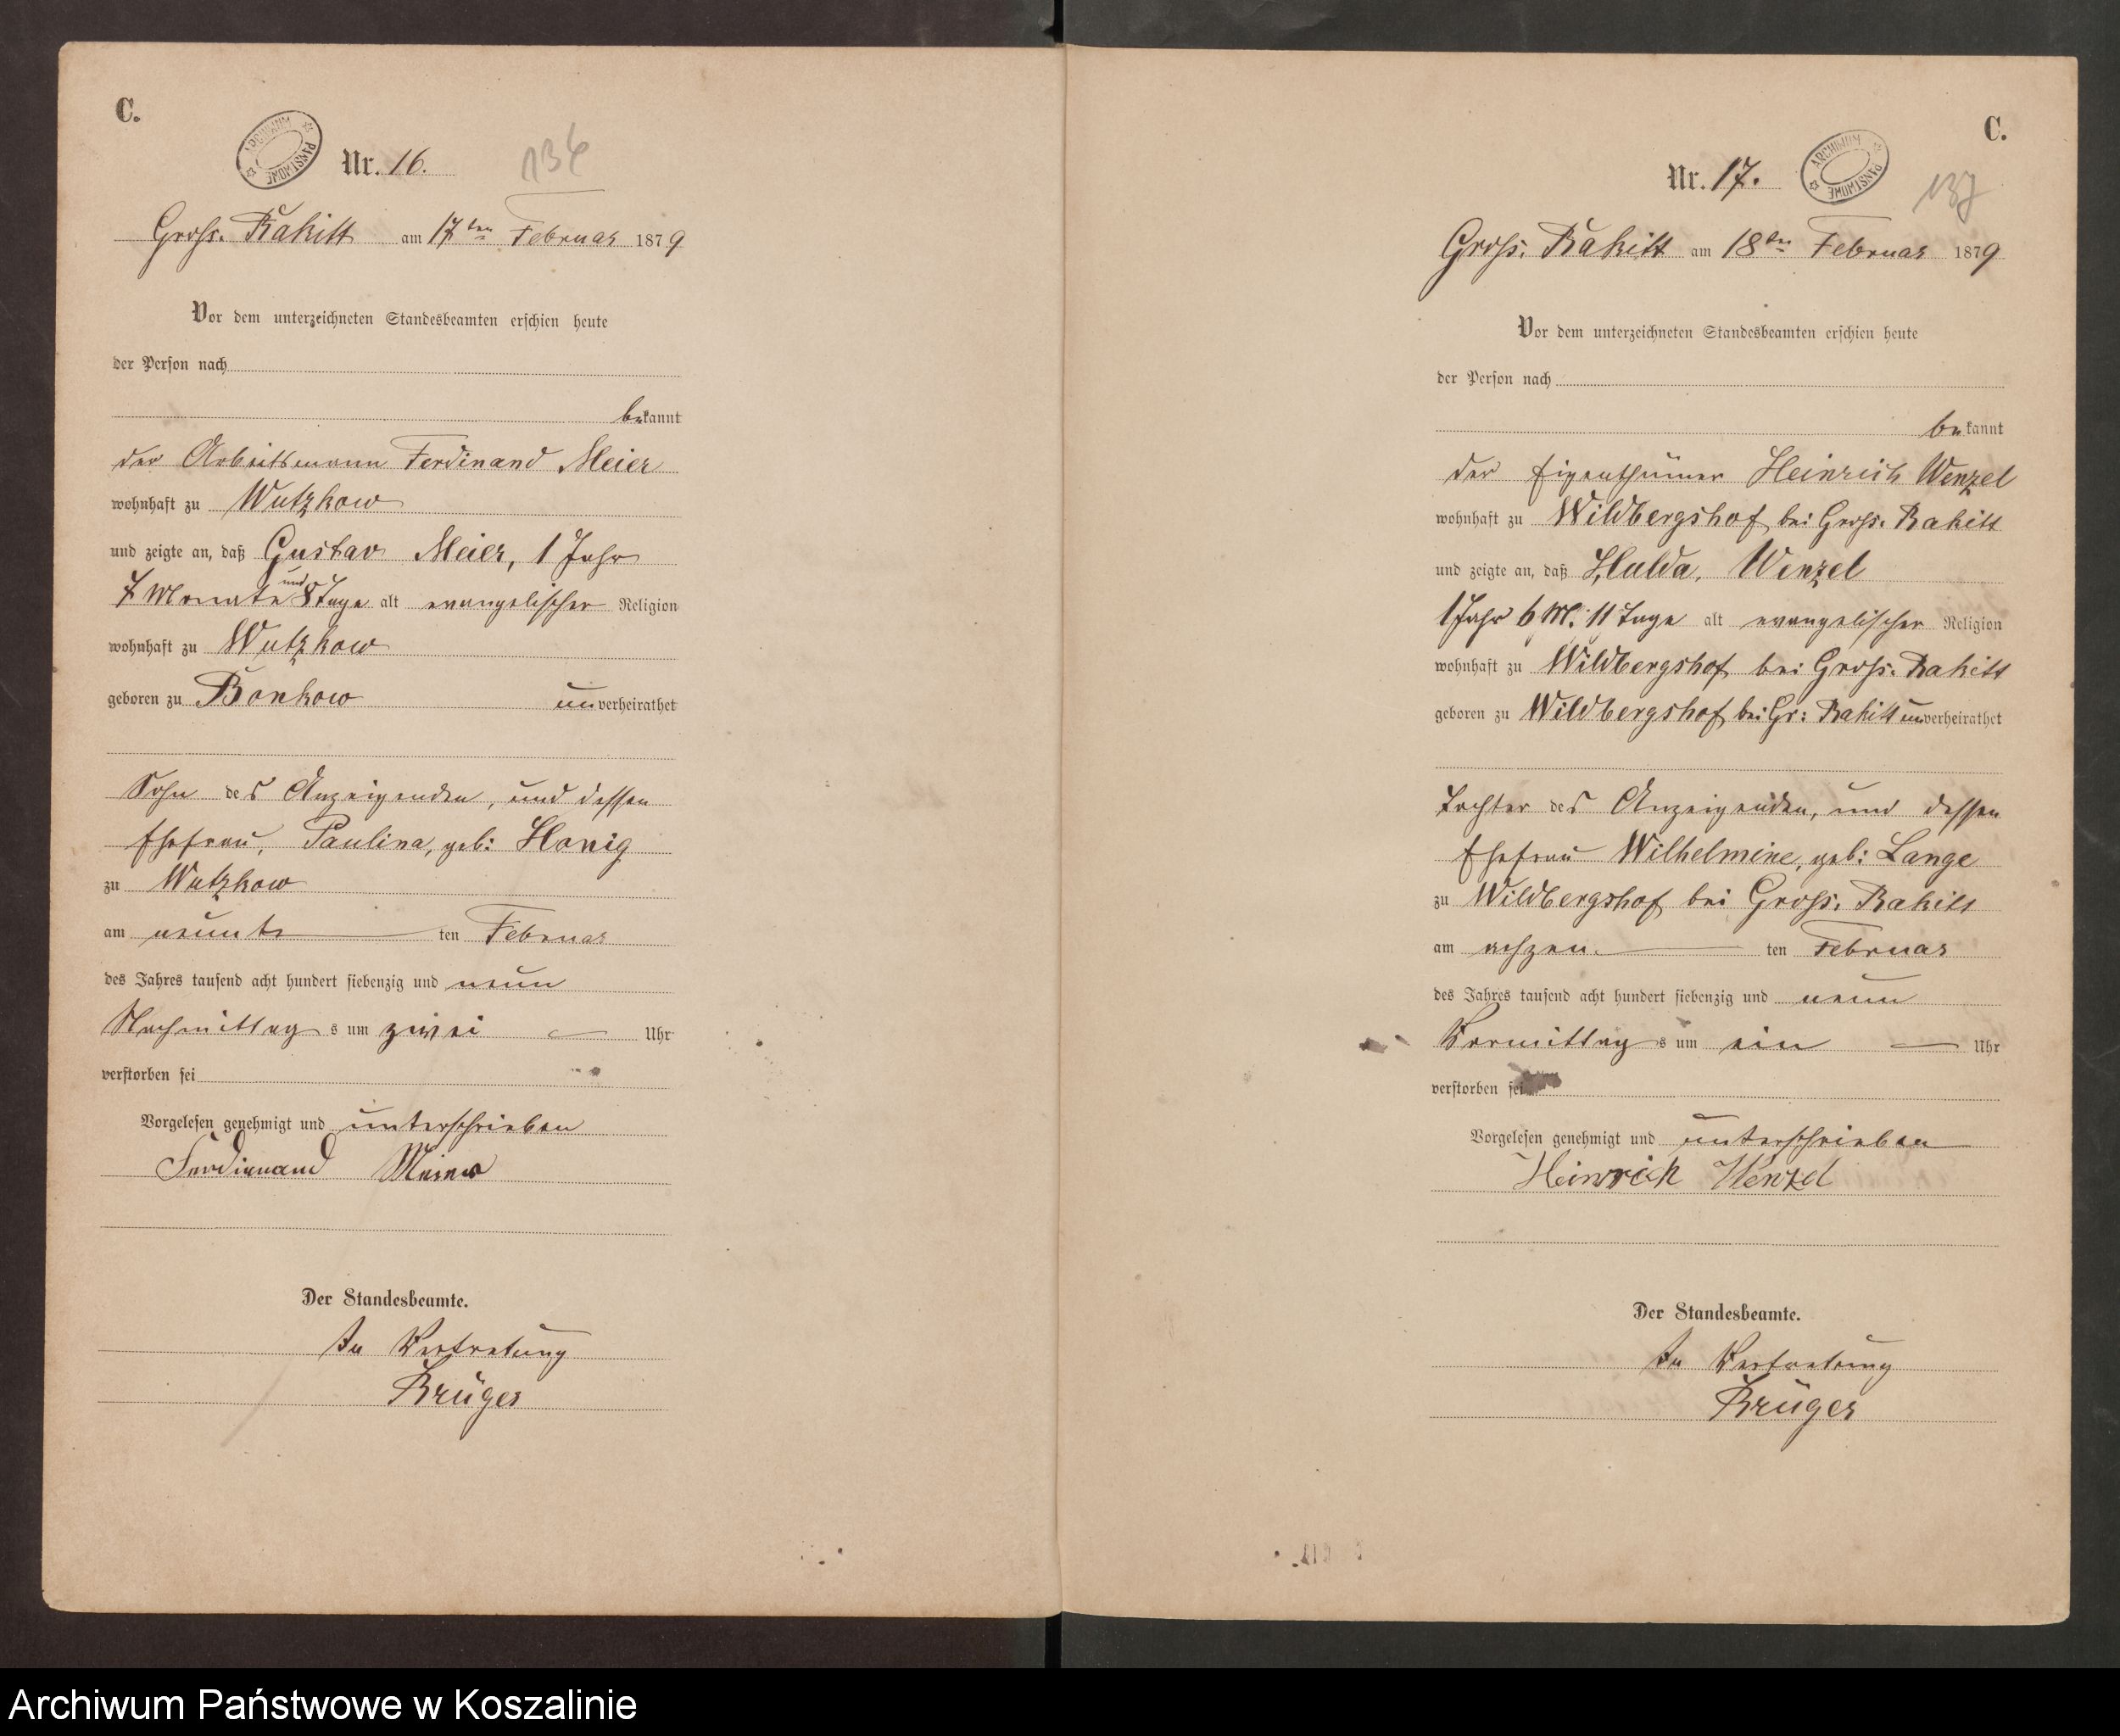 C.
ARCHIWUM PAŃSTWOWE
Nr. 16.
136
Gross. Rakitt am 17ten Februar 1879
Vor dem unterzeichneten Standesbeamten erschien heute
der Person nach
bekannt
der Arbeitsmann Ferdinand Meier
wohnhaft zu Wutzkow
und zeigte an, daß Gustav Meier, 1 Jahr
7 Monate und 8 Tage alt evangelischer Religion
wohnhaft zu Wutzkow
geboren zu Bonkow unverheirathet
Sohn des Anzeigenden, und dessen
Ehefrau, Paulina, geb: Honig
zu Wutzkow
am neunte ten Februar
des Jahres tausend acht hundert siebenzig und neun
Nachmittags um zwei Uhr
verstorben sei
Vorgelesen genehmigt und unterschrieben
Ferdinand Meier
Der Standesbeamte.
In Vertretung
Krüger
C.
ARCHIWUM PAŃSTWOWE
Nr. 17.
137
Gross: Rakitt am 18ten Februar 1879
Vor dem unterzeichneten Standesbeamten erschien heute
der Person nach
bekannt
der Eigenthümer Heinrich Wenzel
wohnhaft zu Wildbergshof bei Gross. Rakitt
und zeigte an, daß Hulda, Wenzel
1 Jahr 6 M: 11 Tage alt evangelischer Religion
wohnhaft zu Wildbergshof bei Gross: Rakitt
geboren zu Wildbergshof bei Gr: Rakitt unverheirathet
Tochter des Anzeigenden, und dessen
Ehefrau Wilhelmine, geb: Lange
zu Wildbergshof bei Gross. Rakitt
am achzen ten Februar
des Jahres tausend acht hundert siebenzig und neun
Vormittags um ein Uhr
verstorben sei
Vorgelesen genehmigt und unterschrieben
Heinrich Wenzel
Der Standesbeamte.
In Vertretung
Krüger
Archiwum Państwowe w Koszalinie